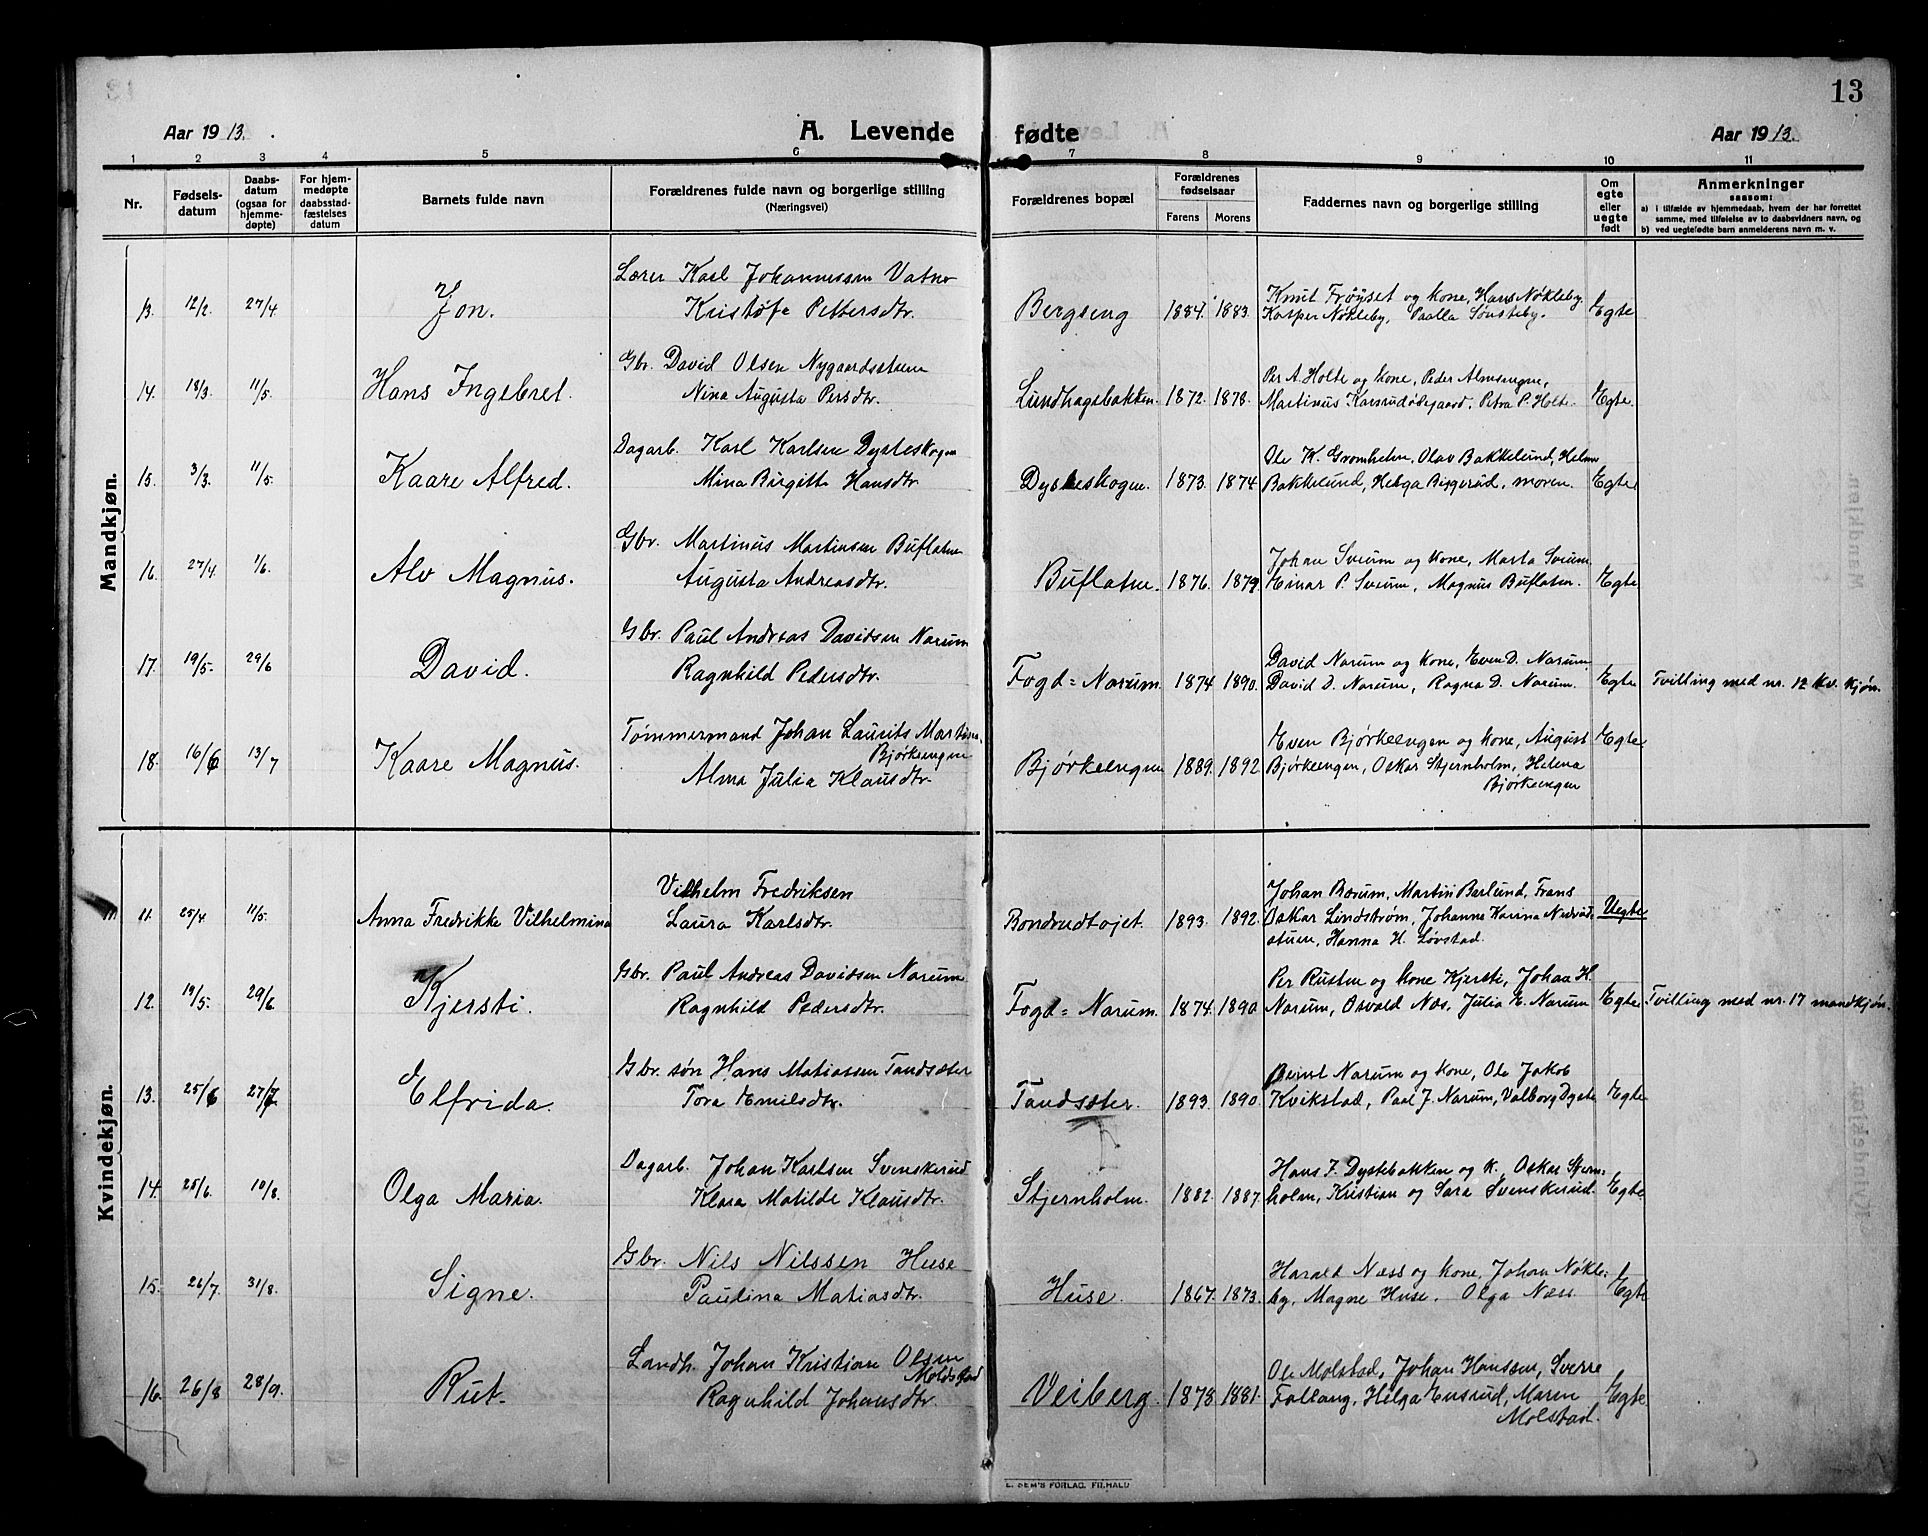 13
Aar 1913. A. Levende fødte Aar 1913.
1 2 3 4 5 6 7 8 9 10 11
Nr. Fødselsdatum Daabsdatum (ogsaa for hjemmedøpte) For hjemmedøpte daabsstadfæstelses datum Barnets fulde navn Forældrenes fulde navn og borgerlige stilling (Næringsvei) Forældrenes bopæl Forældrenes fødselsaar Farens Morens Faddernes navn og borgerlige stilling Om egte eller uegte født Anmerkninger saasom: a) i tilfælde av hjemmedaab, hvem der har forrettet samme, med tilføielse av to daabsvidners navn, og b) ved uegtefødte barn anmelderens navn m. v.
Mandkjøn.
Lærer Karl Johannessen Vatne
13. 12/2. 27/4 Jon. Kristofa Pettersdtr. Bergseng 1884. 1883. Knut Frøyset og kone, Hans Nøkleby,
Kasper Nøkleby, Paalla Sønsteby. Egte
Gbr. David Olsen Nygaardsstuen
14. 18/3. 11/5. Hans Ingebret. Nina Augusta Persdtr. Lundhagebakken. 1872. 1878. Per A. Holte og kone, Peder Almsengne,
Martinus Karsrudødegaard, Petra P. Holte. Egte.
Dagarb. Karl Karlsen Dysteskogen
15. 3/3. 11/5. Kaare Alfred. Mina Birgitte Hansdtr. Dysteskogen. 1873. 1874 Ole K. Gromheim, Olav Bakkelund, Helene
Bakkelund, Helga Biggerud, moren. Egte
Gbr. Martinus Martinsen Buflaten
16. 27/4. 1/6. Alv Magnus. Augusta Andreasdtr. Buflaten. 1876. 1879. Johan Sveum og kone, Marta Sveum,
Einar P. Sveum, Magnus Buflaten. Egte
Gbr. Paul Andreas Davidsen Narum
17. 19/5. 29/6 David. Ragnhild Pedersdtr. Fogd=Narum 1874 1890. David Narum og kone, Even D. Narum,
David D. Narum, Ragna D. Narum. Egte Tvilling med nr. 12 kv. kjøn.
Tømmermand Johan Laurits Martinsen
Bjørkeengen
18. 16/6 13/7 Kaare Magnus. Alma Julia Klausdtr. Bjørkeengen 1889. 1892. Even Bjørkeengen og kone, August
Bjørkeengen, Oskar Stjernholm, Helena
Bjørkeengen Egte
Kvindekjøn.
Vilhelm Fredriksen
11. 25/4 11/5. Anna Fredrikke Vilhelmina Laura Karlsdtr. Bondrudtojet. 1893. 1892. Johan Børum, Martin Barlund, Frans
Oskar Lindstrøm, Johanne Karina
stuen, Hanna H. Løvstad. Uegte
Gbr. Paul Andreas Davidsen Narum
12. 19/5. 29/6 Kjersti. Ragnhild Pedersdtr. Fogd=Narum. 1874. 1890 Per Rusten og kone Kjersti, Johan H.
Narum, Osvald Næs, Julia E. Narum Egte Tvilling med nr. 17 mandkjøn.
Gbr. søn Hans Matiassen Tandsæter
13. 25/6 27/7 Elfrida. Tora Emilsdtr. Tandsæter. 1893. 1890. Bernt Narum og kone, Ole Jakob
Kvikstad, Paal J. Narum, Valborg Dyste Egte
Dagarb. Johan Karlsen Svenskerud
14. 25/6. 10/8. Olga Maria. Klara Matilde Klausdtr. Stjernholm. 1882. 1887. Hans J. Dystebakken og k., Oskar Stern=
holm, Kristian og Sara Svenskerud. Egte
Gbr. Nils Nilssen Huse
15. 26/7. 31/8. Signe. Paulina Matiasdtr. Huse. 1867. 1873. Harald Næss og kone, Johan Nøkle=
by, Magne Huse, Olga Næss Egte
Landh. Johan Kristian Olsen
Moldstad
16. 26/8 28/9. Rut. Ragnhild Johansdtr. Veiberg. 1878 1881. Ole Molstad, Johan Hanssen, Sverre
Fallang, Helga Ensrud, Maren
Molstad. Egte
E. SEM'S FORLAG. FR.HALD